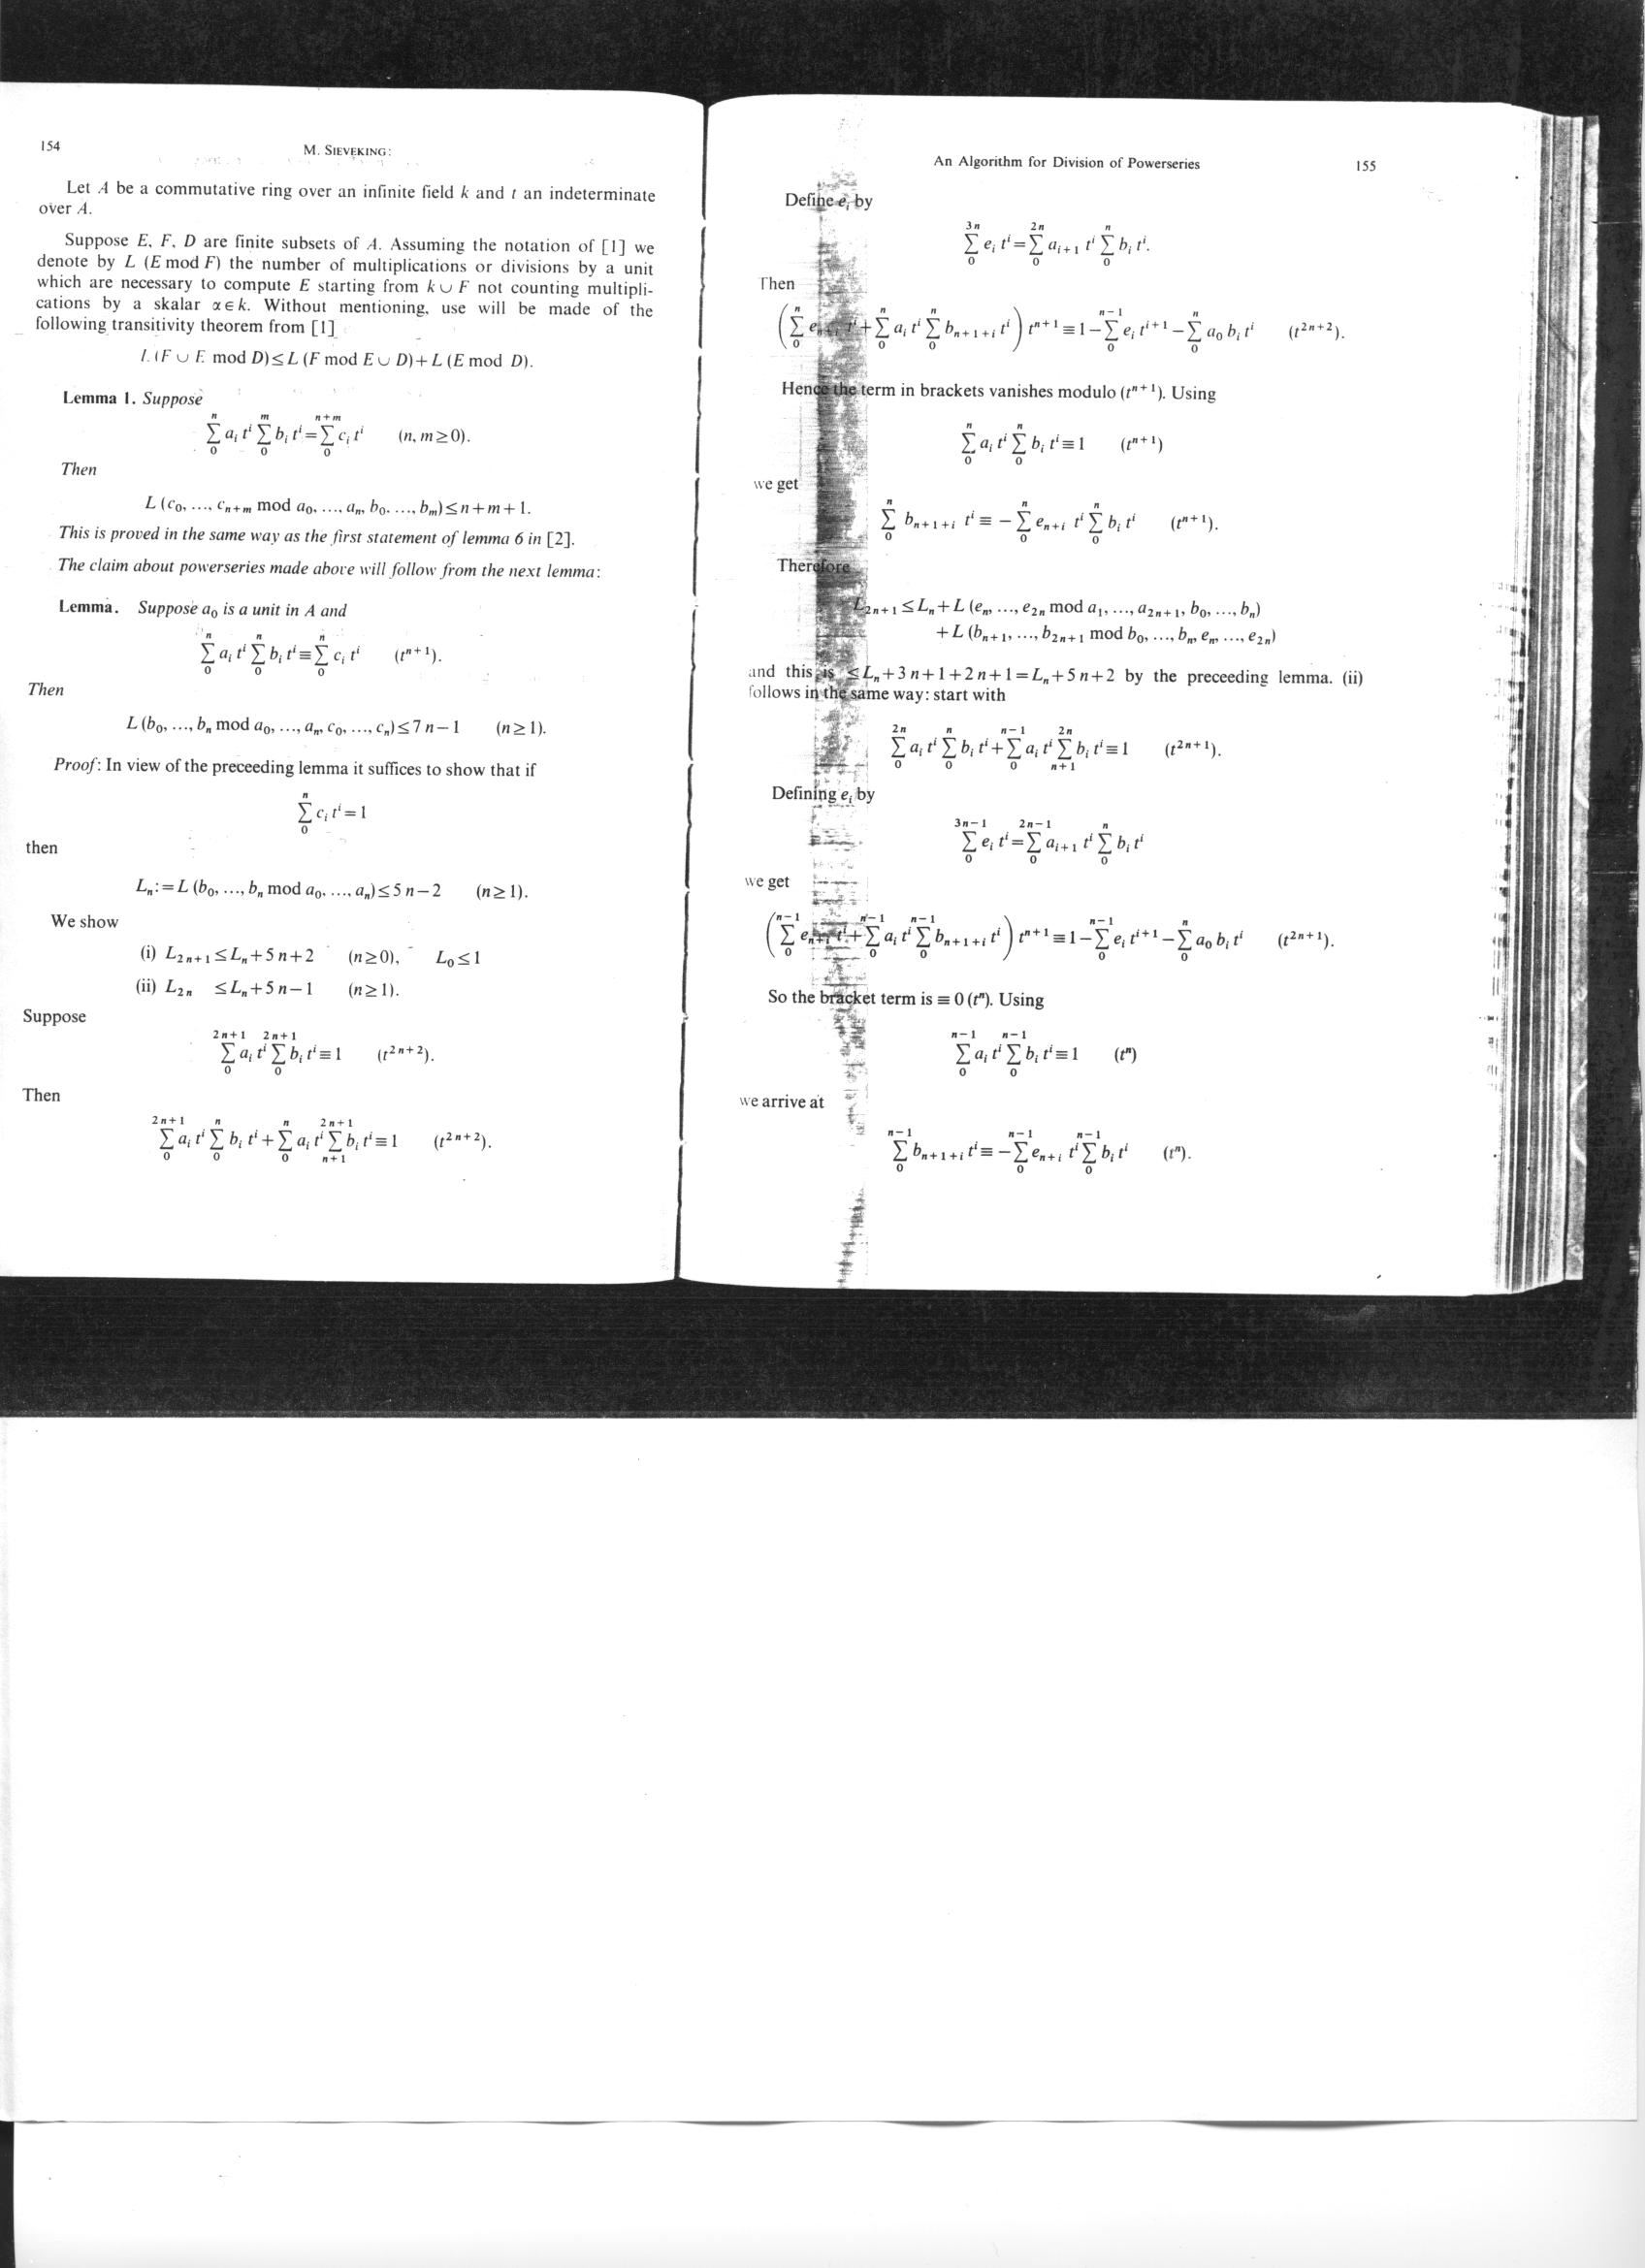 154
M. SIEVEKING:
Let A be a commutative ring over an infinite field k and t an indeterminate
over A.
Suppose E, F, D are finite subsets of A. Assuming the notation of [1] we
denote by L (E mod F) the number of multiplications or divisions by a unit
which are necessary to compute E starting from k ∪ F not counting multipli-
cations by a skalar α ∈ k. Without mentioning, use will be made of the
following transitivity theorem from [1]
L (F ∪ E mod D) ≤ L (F mod E ∪ D) + L (E mod D).
Lemma 1. Suppose
∑_0^n a_i t^i ∑_0^m b_i t^i = ∑_0^{n+m} c_i t^i (n, m ≥ 0).
Then
L (c_0, ..., c_{n+m} mod a_0, ..., a_n, b_0, ..., b_m) ≤ n + m + 1.
This is proved in the same way as the first statement of lemma 6 in [2].
The claim about powerseries made above will follow from the next lemma:
Lemma. Suppose a_0 is a unit in A and
∑_0^n a_i t^i ∑_0^n b_i t^i ≡ ∑_0^n c_i t^i (t^{n+1}).
Then
L (b_0, ..., b_n mod a_0, ..., a_n, c_0, ..., c_n) ≤ 7 n − 1 (n ≥ 1).
Proof: In view of the preceeding lemma it suffices to show that if
∑_0^n c_i t^i = 1
then
L_n := L (b_0, ..., b_n mod a_0, ..., a_n) ≤ 5 n − 2 (n ≥ 1).
We show
(i) L_{2n+1} ≤ L_n + 5 n + 2 (n ≥ 0), L_0 ≤ 1
(ii) L_{2n} ≤ L_n + 5 n − 1 (n ≥ 1).
Suppose
∑_0^{2n+1} a_i t^i ∑_0^{2n+1} b_i t^i ≡ 1 (t^{2n+2}).
Then
∑_0^{2n+1} a_i t^i ∑_0^n b_i t^i + ∑_0^n a_i t^i ∑_{n+1}^{2n+1} b_i t^i ≡ 1 (t^{2n+2}).
An Algorithm for Division of Powerseries
155
Define e_i by
∑_0^{3n} e_i t^i = ∑_0^{2n} a_{i+1} t^i ∑_0^n b_i t^i.
Then
(∑_0^n e_{n+i} t^i + ∑_0^n a_i t^i ∑_0^n b_{n+1+i} t^i) t^{n+1} ≡ 1 − ∑_0^{n−1} e_i t^{i+1} − ∑_0^n a_0 b_i t^i (t^{2n+2}).
Hence the term in brackets vanishes modulo (t^{n+1}). Using
∑_0^n a_i t^i ∑_0^n b_i t^i ≡ 1 (t^{n+1})
we get
∑_0^n b_{n+1+i} t^i ≡ − ∑_0^n e_{n+i} t^i ∑_0^n b_i t^i (t^{n+1}).
Therefore
L_{2n+1} ≤ L_n + L (e_n, ..., e_{2n} mod a_1, ..., a_{2n+1}, b_0, ..., b_n)
+ L (b_{n+1}, ..., b_{2n+1} mod b_0, ..., b_n, e_n, ..., e_{2n})
and this is ≤ L_n + 3 n + 1 + 2 n + 1 = L_n + 5 n + 2 by the preceeding lemma. (ii)
follows in the same way: start with
∑_0^{2n} a_i t^i ∑_0^n b_i t^i + ∑_0^{n−1} a_i t^i ∑_{n+1}^{2n} b_i t^i ≡ 1 (t^{2n+1}).
Defining e_i by
∑_0^{3n−1} e_i t^i = ∑_0^{2n−1} a_{i+1} t^i ∑_0^n b_i t^i
we get
(∑_0^{n−1} e_{n+i} t^i + ∑_0^{n−1} a_i t^i ∑_0^{n−1} b_{n+1+i} t^i) t^{n+1} ≡ 1 − ∑_0^{n−1} e_i t^{i+1} − ∑_0^n a_0 b_i t^i (t^{2n+1}).
So the bracket term is ≡ 0 (t^n). Using
∑_0^{n−1} a_i t^i ∑_0^{n−1} b_i t^i ≡ 1 (t^n)
we arrive at
∑_0^{n−1} b_{n+1+i} t^i ≡ − ∑_0^{n−1} e_{n+i} t^i ∑_0^{n−1} b_i t^i (t^n).